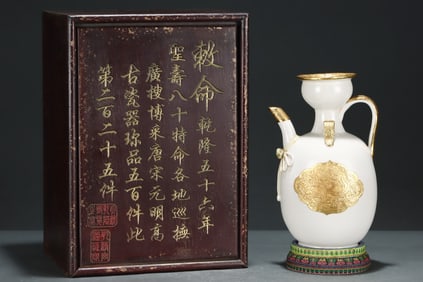 敕命
乾隆五十六年
聖壽八十特命各地巡撫
廣搜博采唐宋元明高
古瓷器珍品五百件此
第二百二十五件